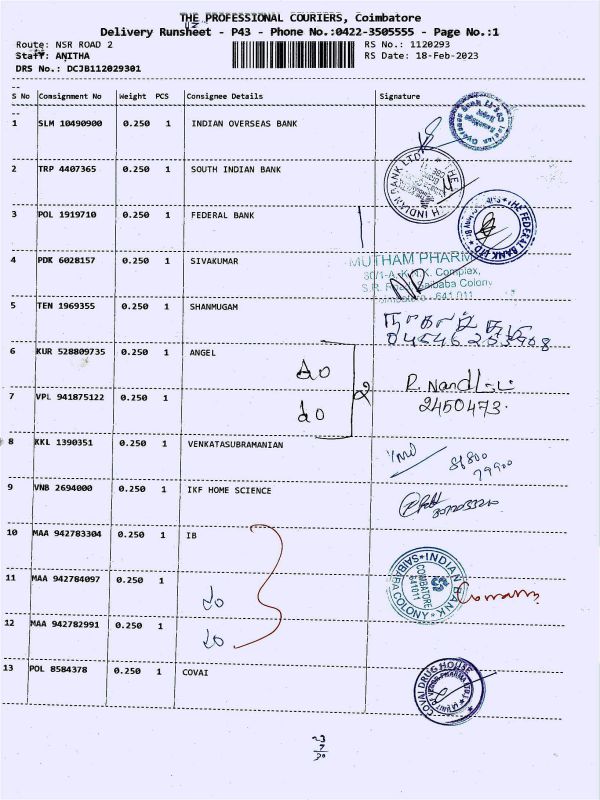 THE PROFESSIONAL COURIERS, Coimbatore
Delivery Runsheet - P43 - Phone No.:0422-3505555 - Page No.:1
Route: NSR ROAD 2
RS No.: 1120293
Staff: ANITHA
RS Date: 18-Feb-2023
DRS No.: DCJB112029301
S No Consignment No Weight PCS Consignee Details Signature
1 SLM 10490900 0.250 1 INDIAN OVERSEAS BANK
2 TRP 4407365 0.250 1 SOUTH INDIAN BANK
3 POL 1919710 0.250 1 FEDERAL BANK
THE FEDERAL BANK LTD
4 PDK 6028157 0.250 1 SIVAKUMAR
MUTHAM PHARM
80/1-A, K.N.K. Complex,
Saibaba Colony
641 011
5 TEN 1969355 0.250 1 SHANMUGAM
6 KUR 528809735 0.250 1 ANGEL
do
7 VPL 941875122 0.250 1
do
2
2450473.
8 KKL 1390351 0.250 1 VENKATASUBRAMANIAN
9 VNB 2694000 0.250 1 IKF HOME SCIENCE
10 MAA 942783304 0.250 1 IB
11 MAA 942784097 0.250 1
do
INDIAN BANK
SAIBABA COLONY
COIMBATORE
641011
12 MAA 942782991 0.250 1
do
13 POL 8584378 0.250 1 COVAI
COVAI DRUG HOUSE